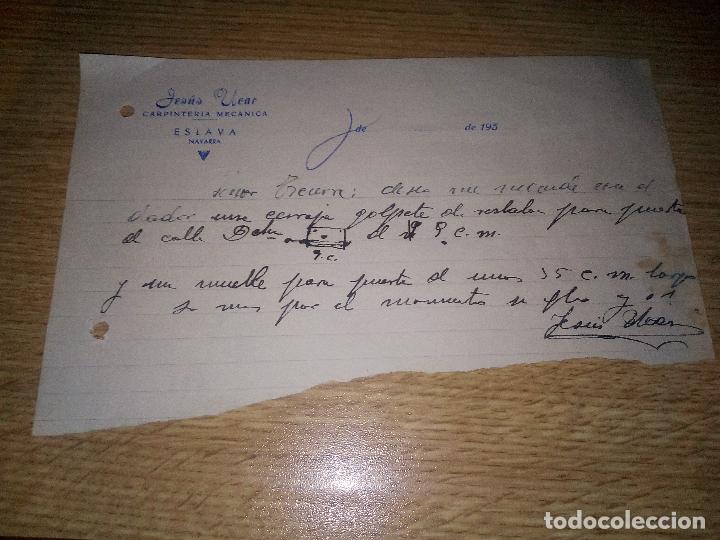 Jesús Ucar
CARPINTERIA MECANICA
ESLAVA
NAVARRA
de de 195
Señor Becerra: desea me mande con el
dador una cerraja golpete de resbalon para puerta
de calle de 9 c.m.
9.c.
y un muelle para puerta de unos 35 c.m. largo
mas por el momento
Jesús Ucar
todocoleccion